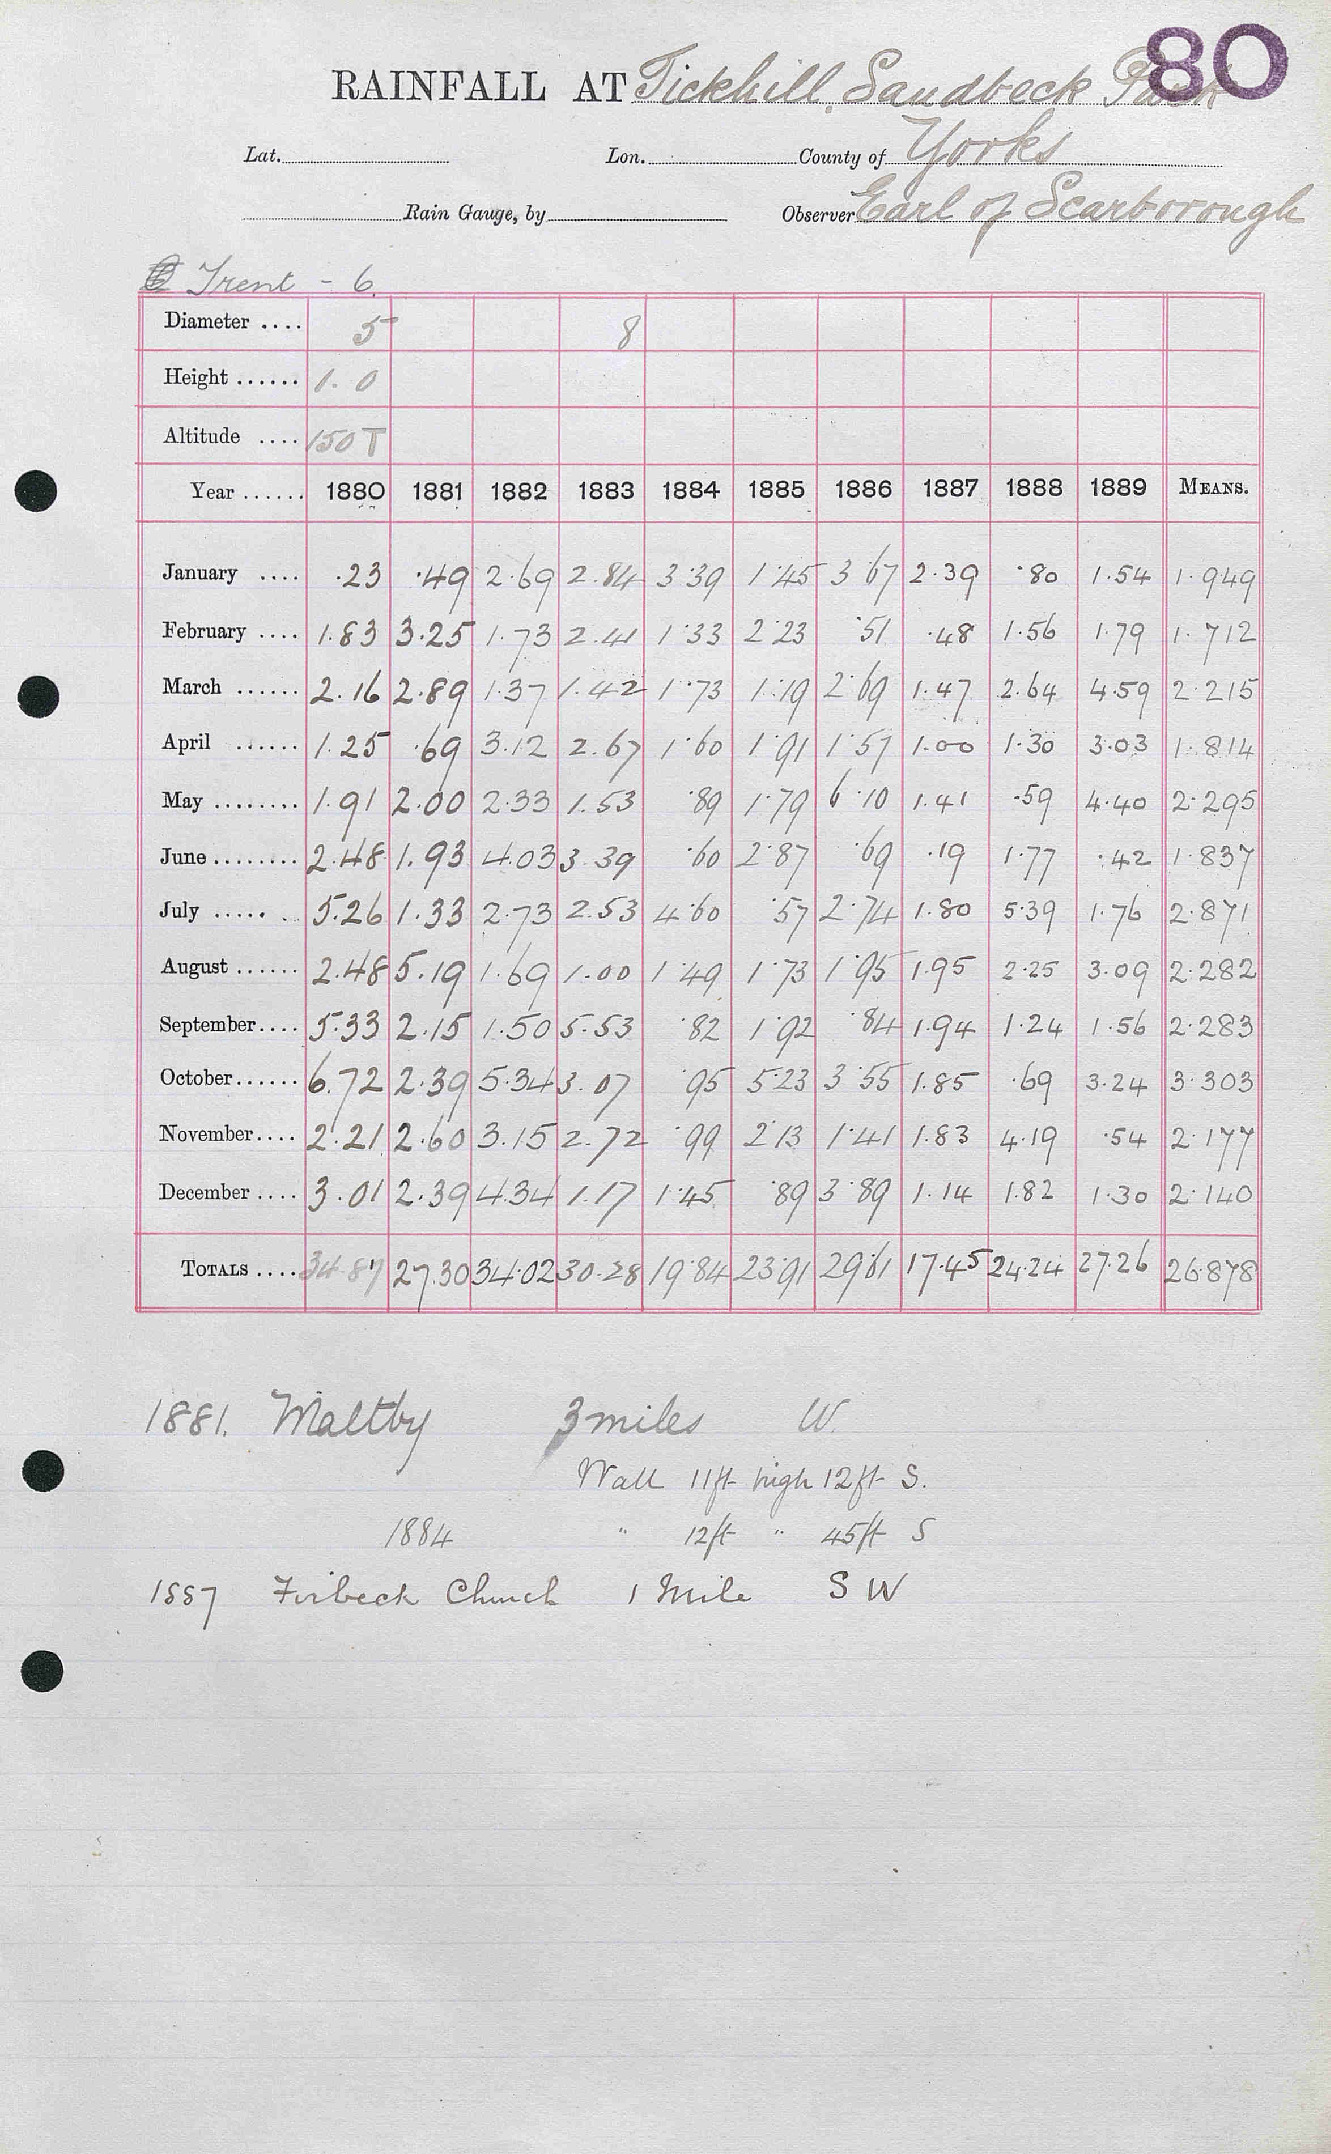 80
RAINFALL AT Tickhill, Sandbeck Park
Lat. Lon. County of Yorks
Rain Gauge, by Observer Earl of Scarborough
Trent - 6.
Diameter .... 5 8
Height ...... 1. 0
Altitude .... 150 T
Year ...... 1880 1881 1882 1883 1884 1885 1886 1887 1888 1889 MEANS.
January .... .23 .49 2.69 2.84 3.39 1.45 3.67 2.39 .80 1.54 1.949
February .... 1.83 3.25 1.73 2.41 1.33 2.23 .51 .48 1.56 1.79 1.712
March ...... 2.16 2.89 1.37 1.42 1.73 1.19 2.69 1.47 2.64 4.59 2.215
April ...... 1.25 .69 3.12 2.67 1.60 1.91 1.57 1.00 1.30 3.03 1.814
May ........ 1.91 2.00 2.33 1.53 .89 1.79 6.10 1.41 .59 4.40 2.295
June ........ 2.48 1.93 4.03 3.39 .60 2.87 .69 .19 1.77 .42 1.837
July ..... .. 5.26 1.33 2.73 2.53 4.60 .57 2.74 1.80 5.39 1.76 2.871
August ...... 2.48 5.19 1.69 1.00 1.49 1.73 1.95 1.95 2.25 3.09 2.282
September.... 5.33 2.15 1.50 5.53 .82 1.92 .84 1.94 1.24 1.56 2.283
October...... 6.72 2.39 5.34 3.07 .95 5.23 3.55 1.85 .69 3.24 3.303
November.... 2.21 2.60 3.15 2.72 .99 2.13 1.41 1.83 4.19 .54 2.177
December .... 3.01 2.39 4.34 1.17 1.45 .89 3.89 1.14 1.82 1.30 2.140
TOTALS .... 34.87 27.30 34.02 30.28 19.84 23.91 29.61 17.45 24.24 27.26 26.878
1881. Maltby 3 miles W.
Wall 11ft high 12ft S.
1884 " 12ft " 45ft S
1887 Firbeck Church 1 Mile S W